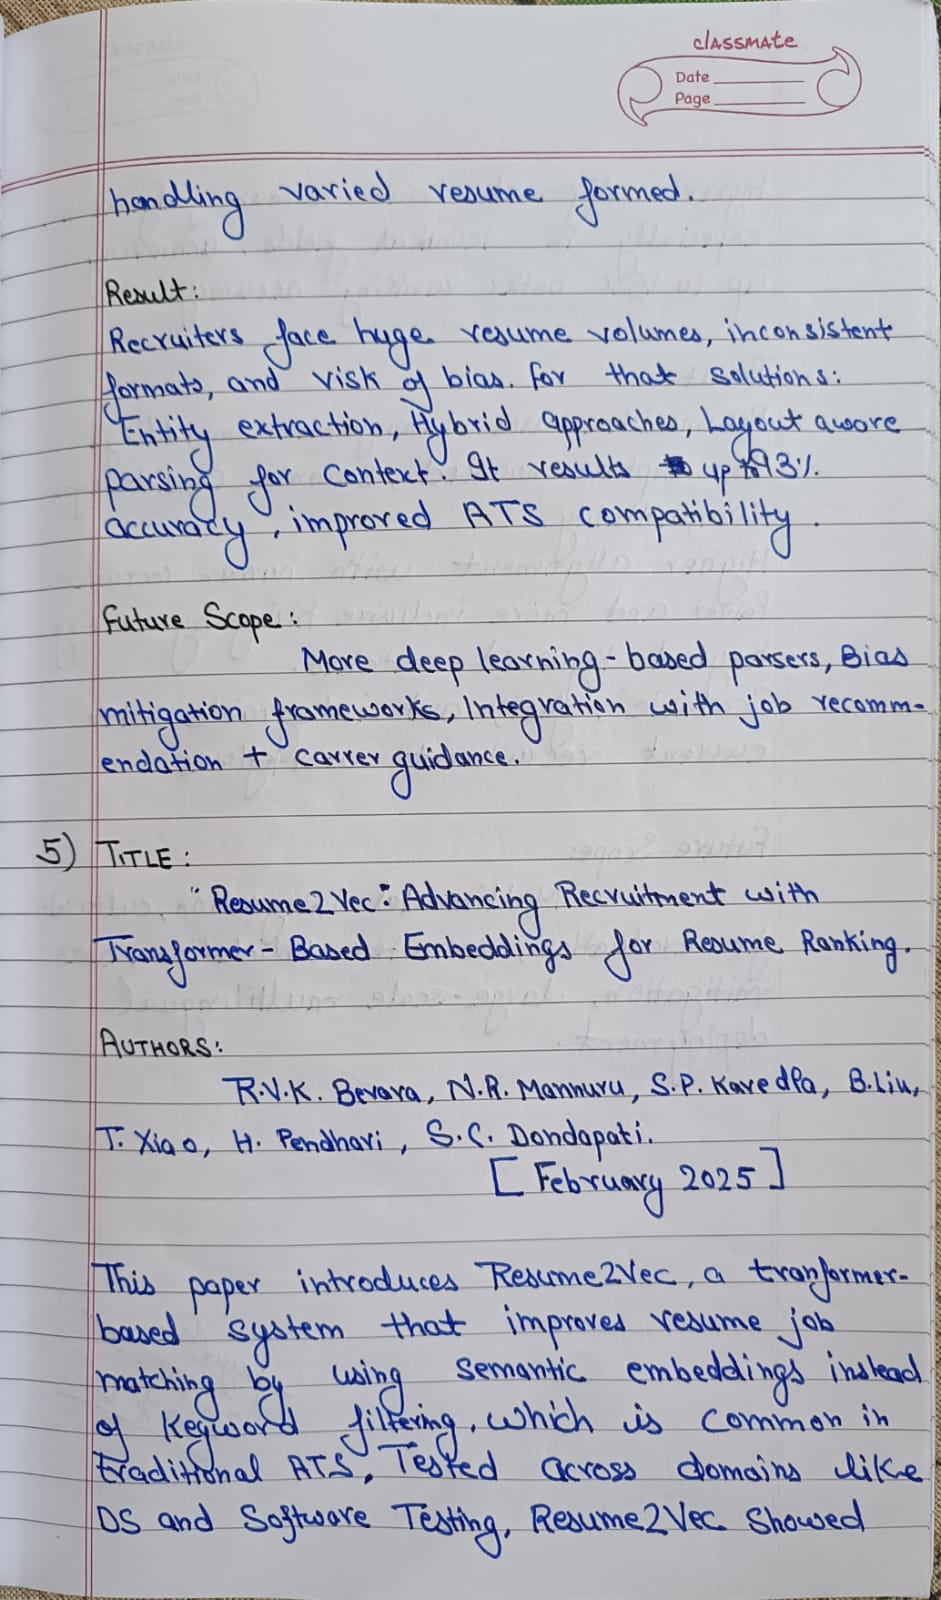 classmate
Date
Page
handling varied resume formed.
Result:
Recruiters face huge resume volumes, inconsistent
formats, and risk of bias. for that solutions:
Entity extraction, Hybrid approaches, Layout aware
parsing for context. It results up to 93%
accuracy, improved ATS compatibility.
Future Scope:
More deep learning-based parsers, Bias
mitigation frameworks, Integration with job recomm-
endation + carrer guidance.
5) TITLE:
"Resume2Vec: Advancing Recruitment with
Transformer-Based Embeddings for Resume Ranking.
AUTHORS:
R.V.K. Bevara, N.R. Mannuru, S.P. Karedla, B.Liu,
T. Xiao, H. Pendhari, S.C. Dondapati.
[February 2025]
This paper introduces Resume2Vec, a tranformer-
based system that improves resume job
matching by using semantic embeddings instead
of keyword filtering, which is common in
traditional ATS, Tested across domains like
DS and Software Testing, Resume2Vec showed